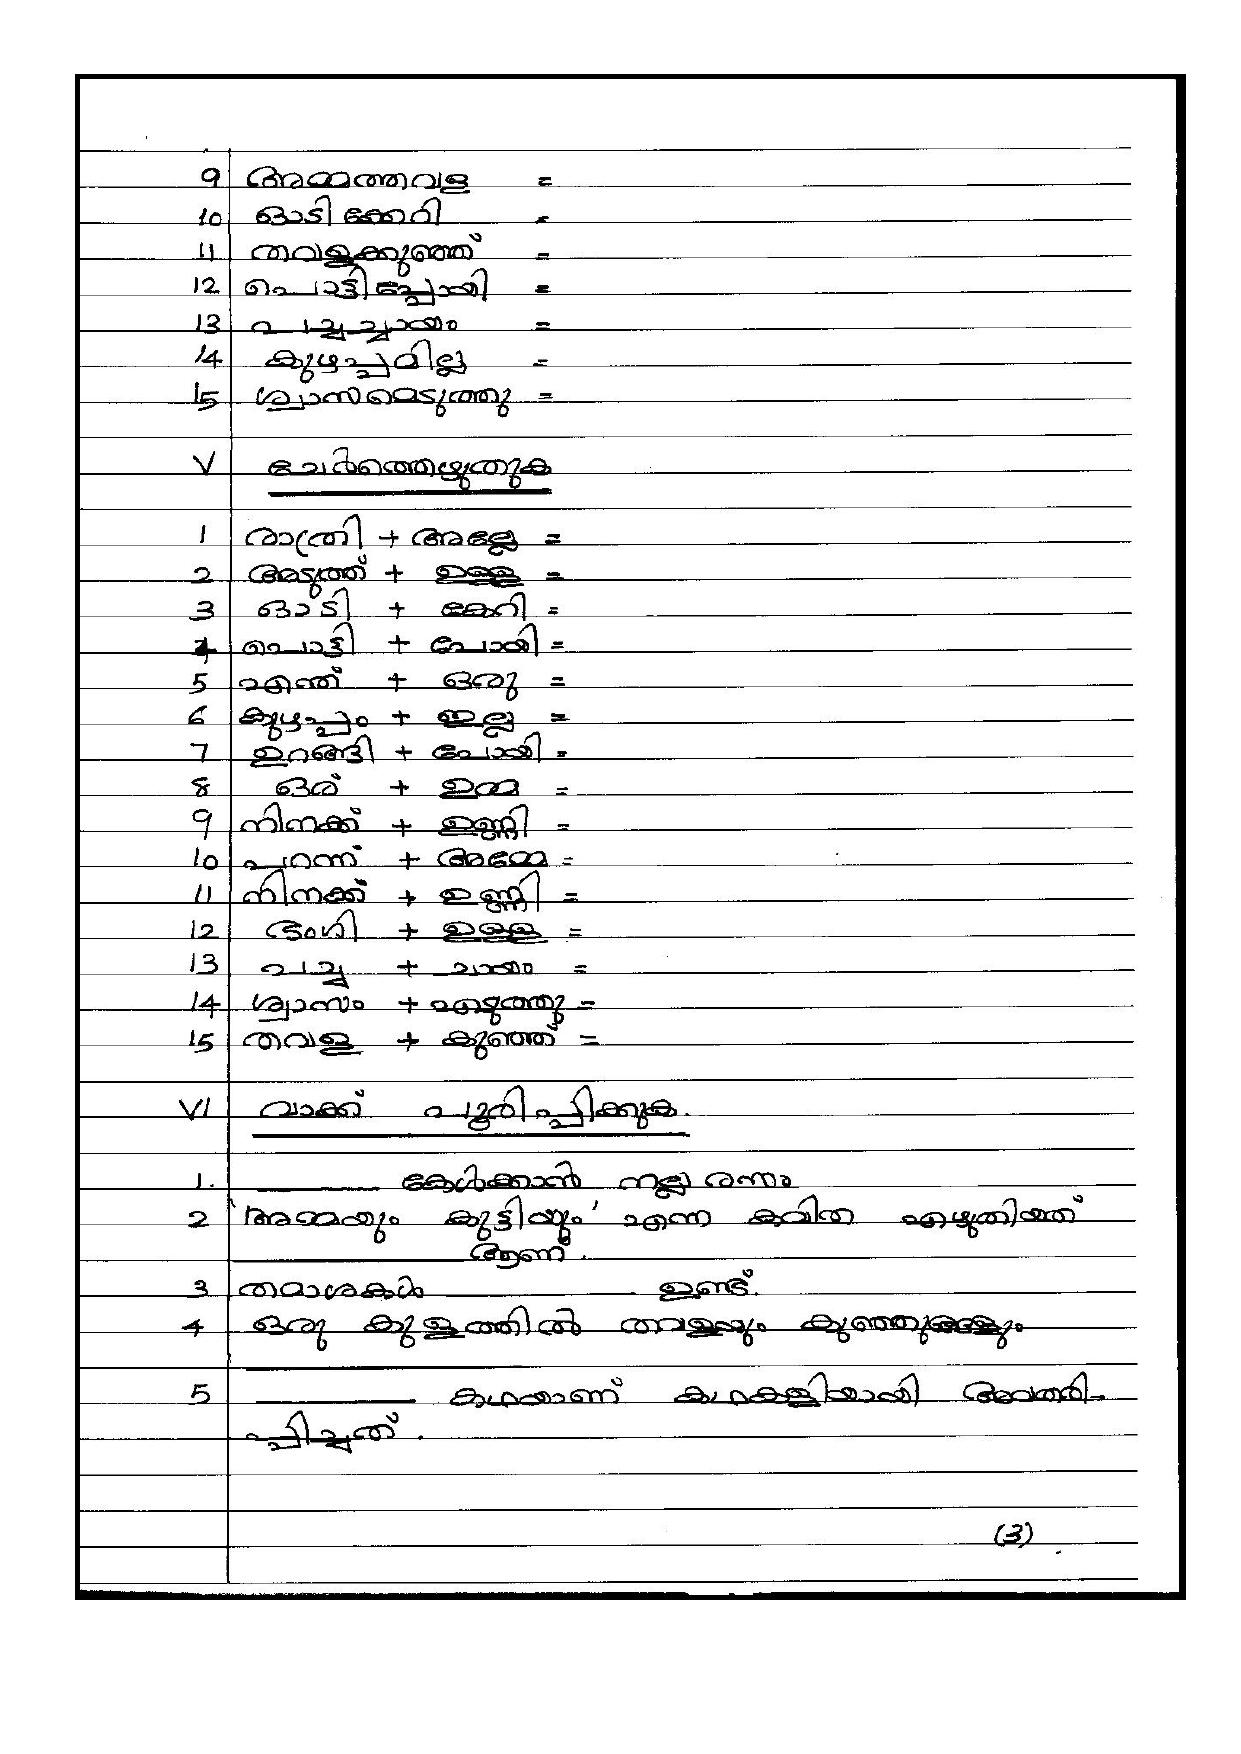 9 അമ്മത്തവള =
10 ഓടിക്കേറി =
11 തവളക്കുഞ്ഞ് =
12 പൊട്ടിപ്പോയി =
13 പച്ചച്ചായം =
14 കുഴപ്പമില്ല =
15 ശ്വാസമെടുത്തു =
V ചേർത്തെഴുതുക
1 രാത്രി + അല്ലേ =
2 അടുത്ത് + ഉള്ള =
3 ഓടി + കേറി =
4 പൊട്ടി + പോയി =
5 എന്ത് + ഒരു =
6 കുഴപ്പം + ഇല്ല =
7 ഉറങ്ങി + പോയി =
8 ഒര് + ഉമ്മ =
9 നിനക്ക് + ഉണ്ണി =
10 പറന്ന് + അമ്മേ =
11 നിനക്ക് + ഉണ്ണി =
12 ഭംഗി + ഉള്ള =
13 പച്ച + ചായം =
14 ശ്വാസം + എടുത്തു =
15 തവള + കുഞ്ഞ് =
VI വാക്ക് പൂരിപ്പിക്കുക.
1. കേൾക്കാൻ നല്ല രസം
2 'അമ്മയും കുട്ടിയും' എന്ന കവിത എഴുതിയത്
ആണ്.
3 തമാശകൾ ഉണ്ട്.
4 ഒരു കുളത്തിൽ തവളയും കുഞ്ഞുങ്ങളും
5 കഥയാണ് കഥകളിയായി അവതരി-
പ്പിച്ചത്.
(3)